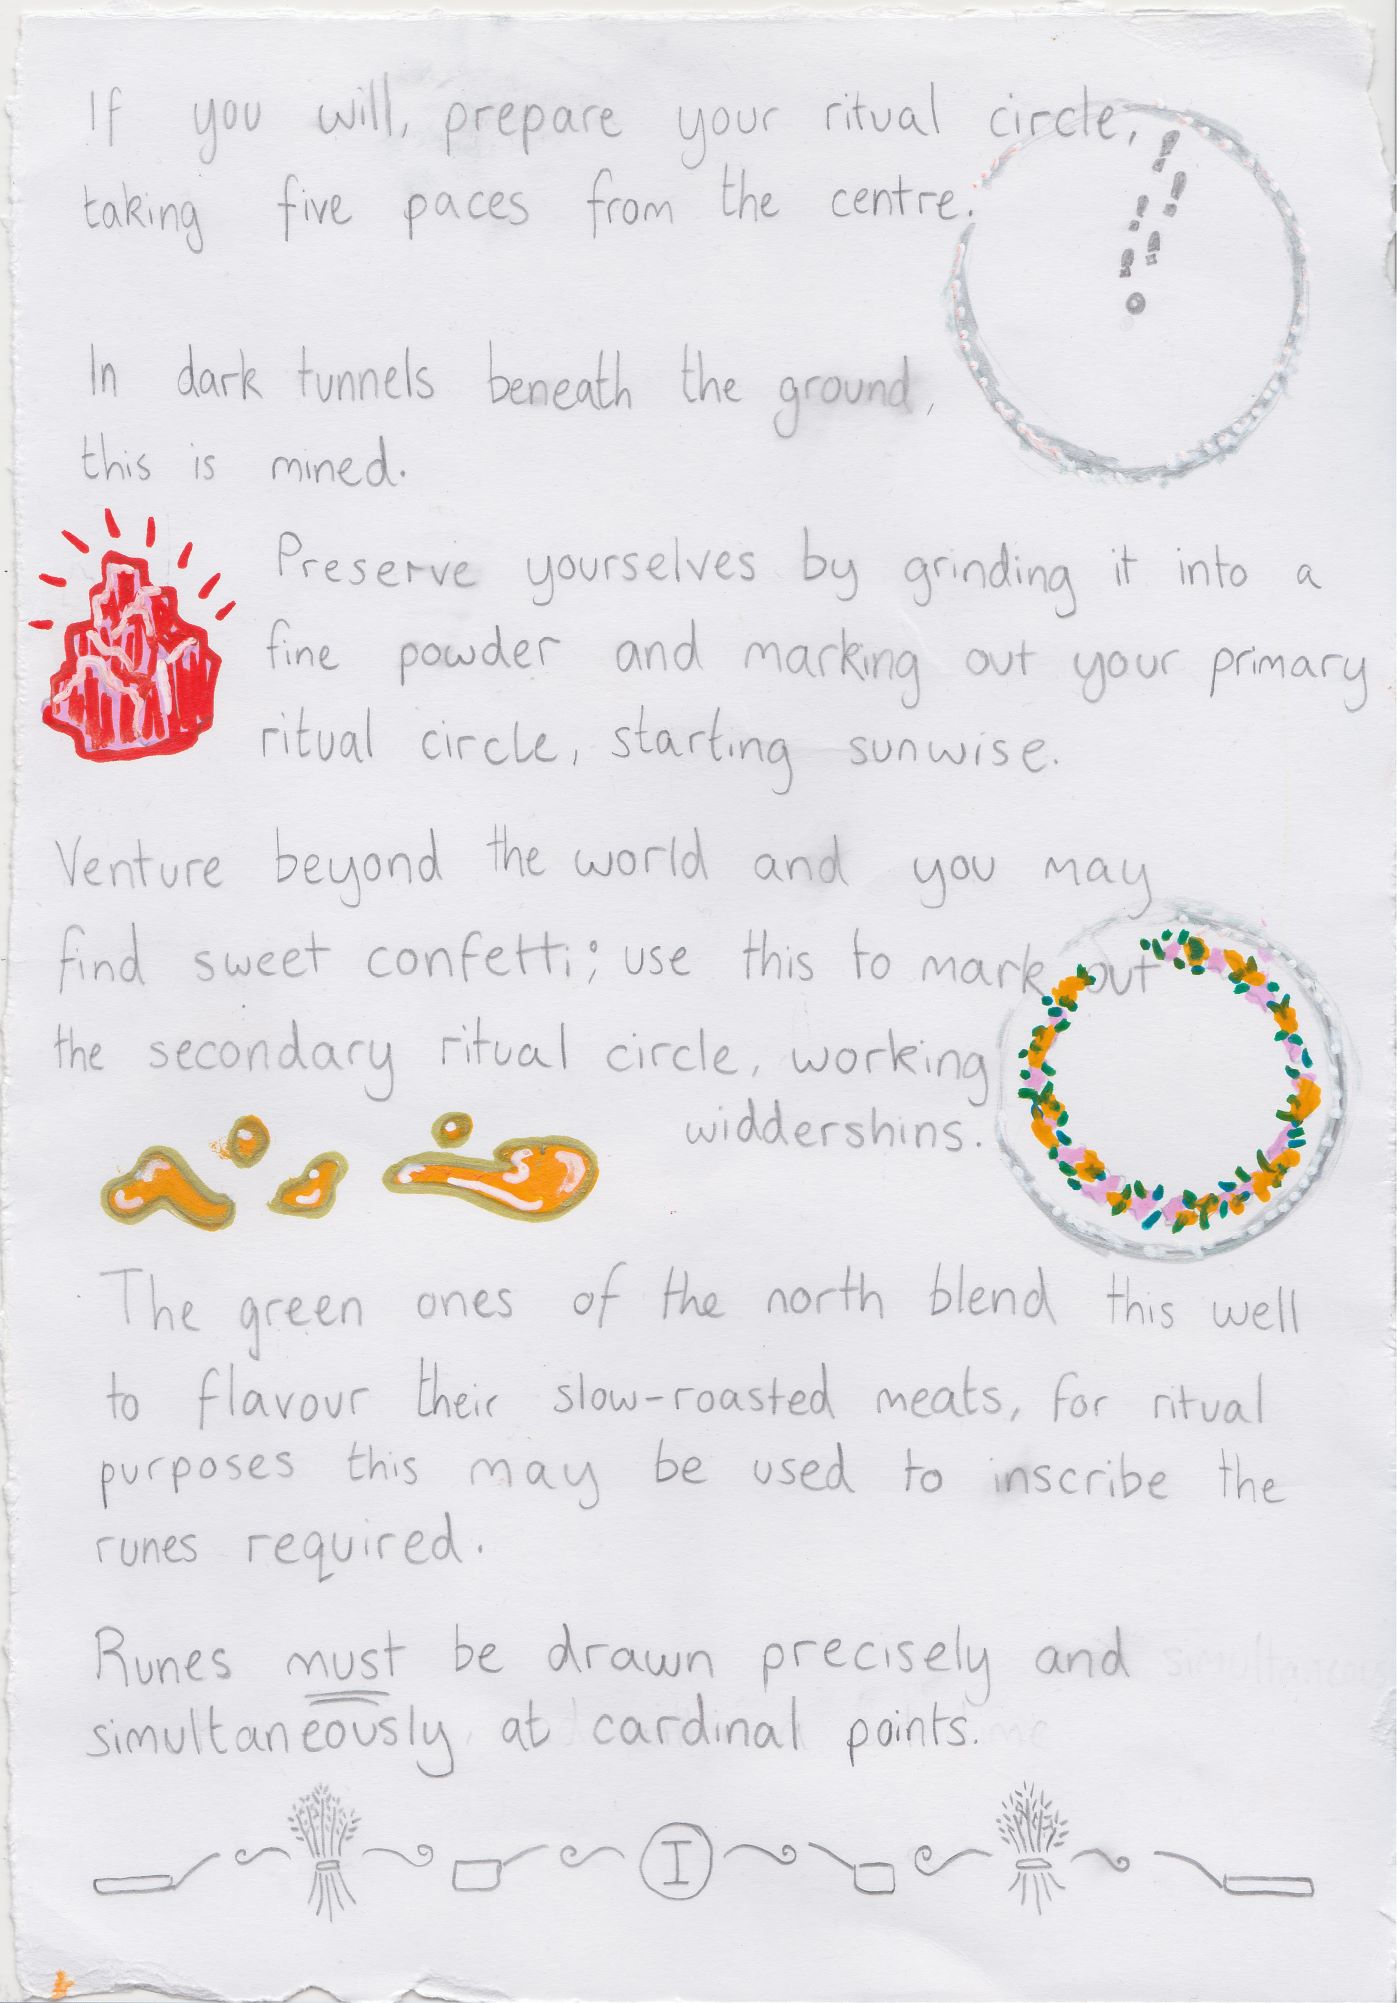 If you will, prepare your ritual circle,
taking five paces from the centre.
In dark tunnels beneath the ground,
this is mined.
Preserve yourselves by grinding it into a
fine powder and marking out your primary
ritual circle, starting sunwise.
Venture beyond the world and you may
find sweet confetti; use this to mark out
the secondary ritual circle, working
widdershins.
The green ones of the north blend this well
to flavour their slow-roasted meats, for ritual
purposes this may be used to inscribe the
runes required.
Runes must be drawn precisely and
simultaneously at cardinal points.
I